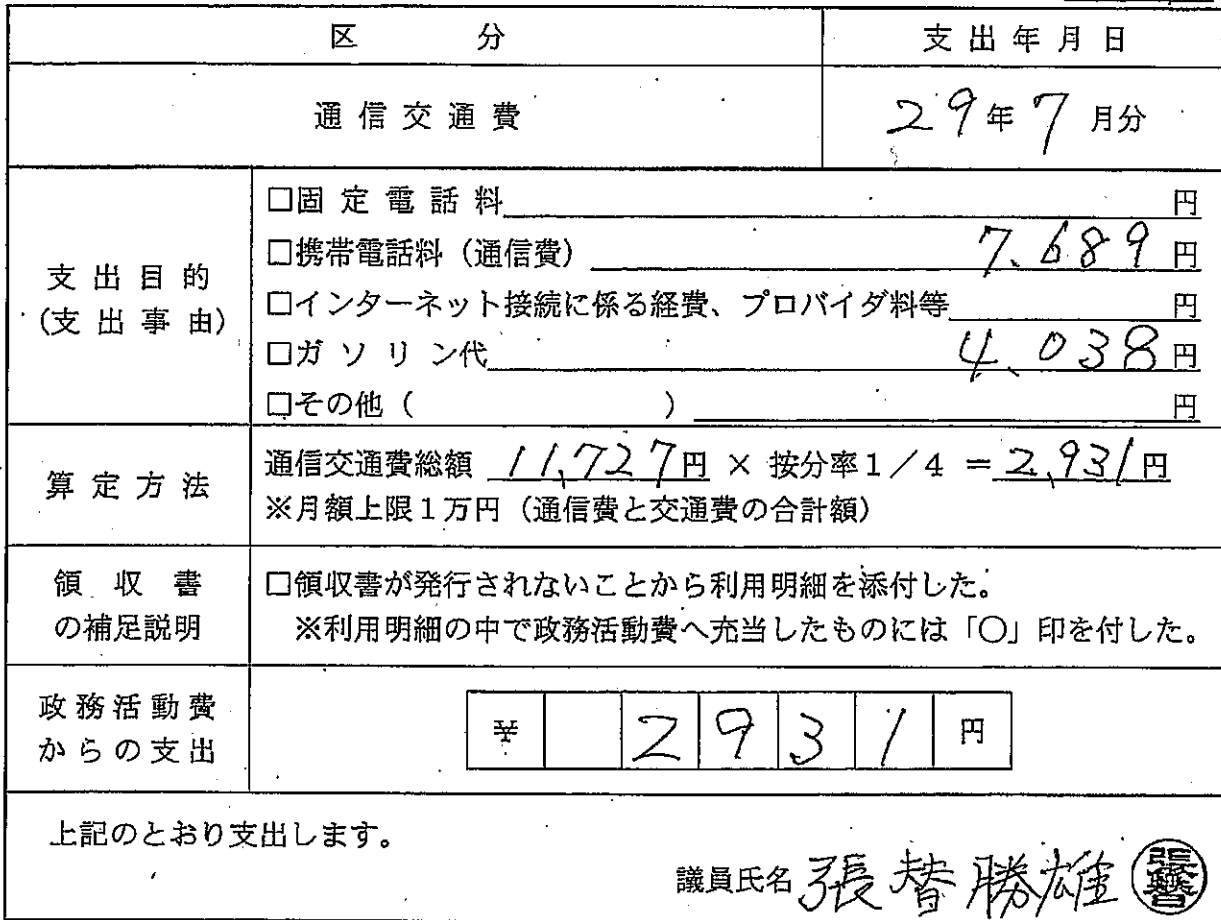 区 分 支出年月日
通信交通費 29年7月分
支出目的
(支出事由)
□固定電話料 円
□携帯電話料（通信費） 7,689円
□インターネット接続に係る経費、プロバイダ料等 円
□ガソリン代 4,038円
□その他（ ） 円
算定方法
通信交通費総額 11,727円 × 按分率1／4 ＝2,931円
※月額上限1万円（通信費と交通費の合計額）
領収書
の補足説明
□領収書が発行されないことから利用明細を添付した。
※利用明細の中で政務活動費へ充当したものには「○」印を付した。
政務活動費
からの支出
￥ 2931円
上記のとおり支出します。
議員氏名 張替勝雄 張替